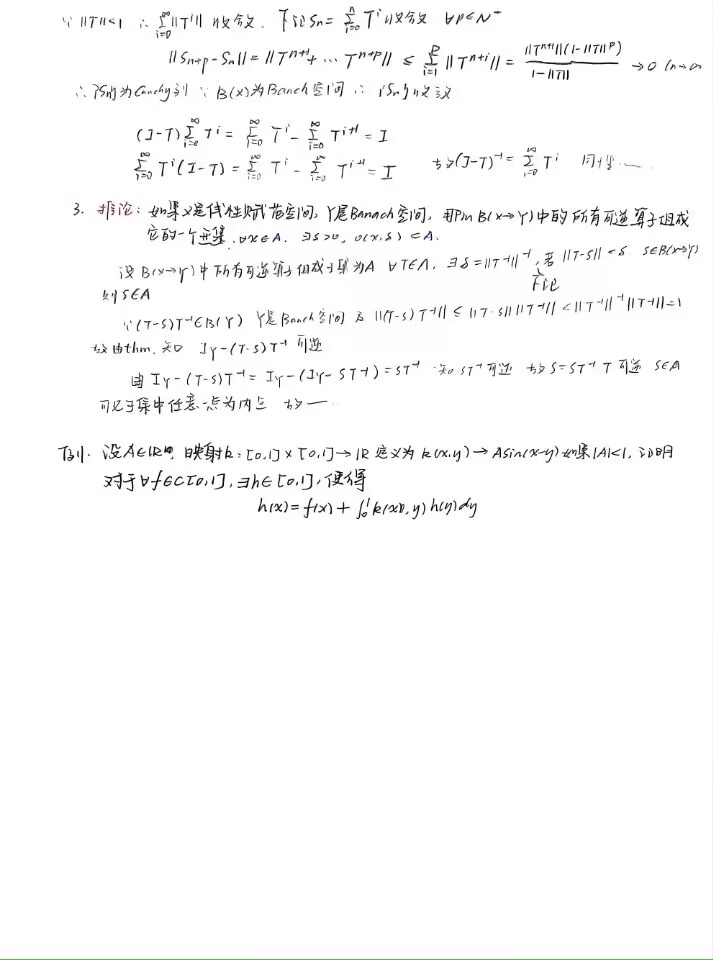 ∵ ||T||<1 ∴ ∑_{i=0}^{∞} ||T^i|| 收敛. 下证 Sn = ∑_{i=0}^{n} T^i 收敛 ∀p∈N⁺
||S_{n+p} - S_n|| = ||T^{n+1} + … T^{n+p}|| ≤ ∑_{i=1}^{p} ||T^{n+i}|| = ||T^{n+1}||(1-||T||^p) / 1-||T|| → 0 (n→∞
∴ {Sn}为Cauchy列 ∵ B(X)为Banach空间 ∴ {Sn}收敛
(I-T)∑_{i=0}^{∞} T^i = ∑_{i=0}^{∞} T^i - ∑_{i=0}^{∞} T^{i+1} = I
∑_{i=0}^{∞} T^i (I-T) = ∑_{i=0}^{∞} T^i - ∑_{i=0}^{∞} T^{i+1} = I 故(I-T)^{-1} = ∑_{i=0}^{∞} T^i ……
3. 推论: 如果X是线性赋范空间, Y是Banach空间, 则 B(X→Y)中的所有可逆算子组成
它的一个开集. ∀x∈A. ∃δ>0, O(x,δ)⊂A.
设 B(X→Y)中所有可逆算子组成子集为A ∀T∈A, ∃δ=||T^{-1}||^{-1}, 若 ||T-S||<δ S∈B(X→Y)
则S∈A 下证
∵ (T-S)T^{-1}∈B(Y) Y是Banach空间 ||(T-S)T^{-1}|| ≤ ||T-S|| ||T^{-1}|| < ||T^{-1}||^{-1} ||T^{-1}|| = 1
故由thm. 知 I_Y-(T-S)T^{-1} 可逆
由 I_Y-(T-S)T^{-1} = I_Y-(I_Y-ST^{-1}) = ST^{-1} 知ST^{-1}可逆 故S=ST^{-1}T 可逆 S∈A
可见子集中任意一点为内点 故—…
例1. 设A∈R 映射k: [0,1]×[0,1]→R 定义为 k(x,y)→Asin(x-y) 如果|A|<1, 证明
对于∀f∈C[0,1], ∃h∈[0,1], 使得
h(x) = f(x) + ∫_0^1 k(x, y) h(y)dy